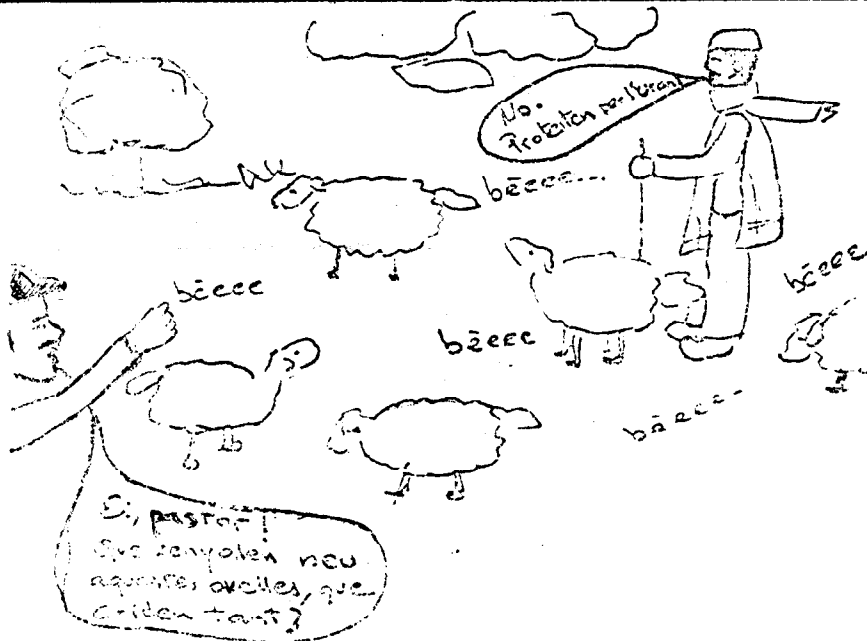 No.
Protesten per
bèeee...
bèeee
bèeee
bèeee
bèeee..
Ei, pastor!
Que senyalen neu
aquestes ovelles, que
criden tant?